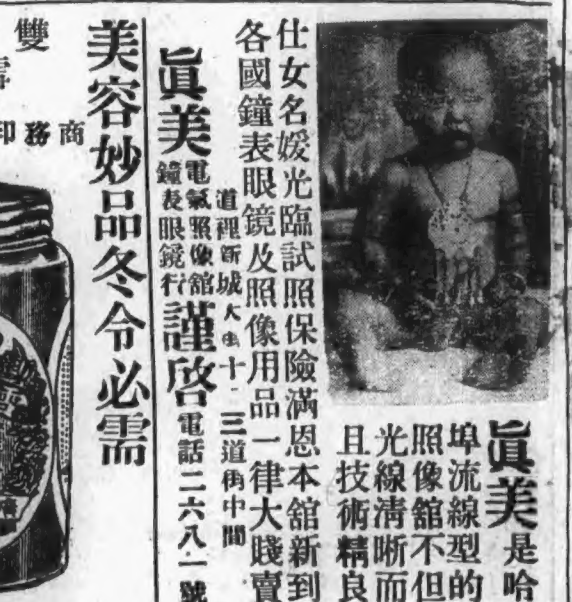 眞美是哈
埠流線型的
照像舘不但
光線清晰而
且技術精良
仕女名媛光臨試照保險滿恩本舘新到
各國鐘表眼鏡及照像用品一律大賤賣
道裡新城大十三道中間
眞美
電氣照像舘
鐘表眼鏡行
謹啓
電話二六八一號
美容妙品冬令必需
雙
商務印